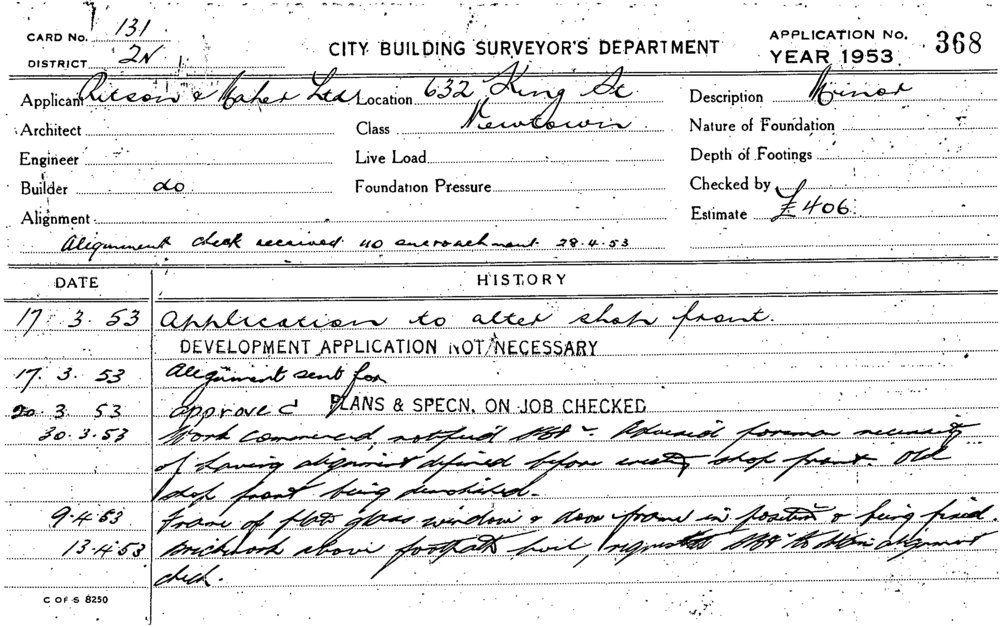 CARD No. 131
CITY BUILDING SURVEYOR'S DEPARTMENT
APPLICATION No. 368
DISTRICT 2N
YEAR 1953
Applicant & Maher Ltd Location 632 King St Description Minor
Architect
Class Newtown
Nature of Foundation
Engineer
Live Load
Depth of Footings
Builder do
Foundation Pressure
Checked by
Alignment
Estimate £406
Alignment check received no encroachment 28.4.53
DATE HISTORY
17.3.53 Application to alter shop front.
DEVELOPMENT APPLICATION NOT NECESSARY
17.3.53 Alignment sent for
20.3.53 approved PLANS & SPECN. ON JOB CHECKED
30.3.53 Work commenced, Advised foreman necessity
of having alignment defined before shop front. Old
shop front being demolished.
9.4.53 Frame of plate glass window & door frame in position & being fixed.
13.4.53 Brickwork above footpath level, alignment
check.
C OF S 8250